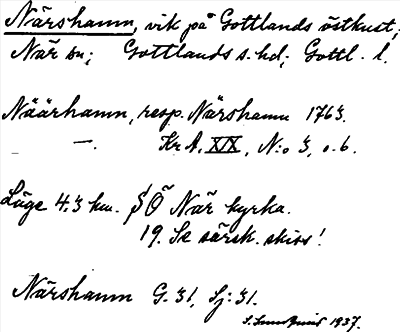 Närshamn, vik på Gottlands östkust,
När sn; Gottlands s. hd; Gottl. l.
Näärhamn, resp. Närshamn 1763.
—. KrA. XIX, N:o 3, o. 6.
Läge 4,3 km. SÖ När kyrka.
19. Se särsk. skiss!
Närshamn G. 31, Sj: 31.
1937.